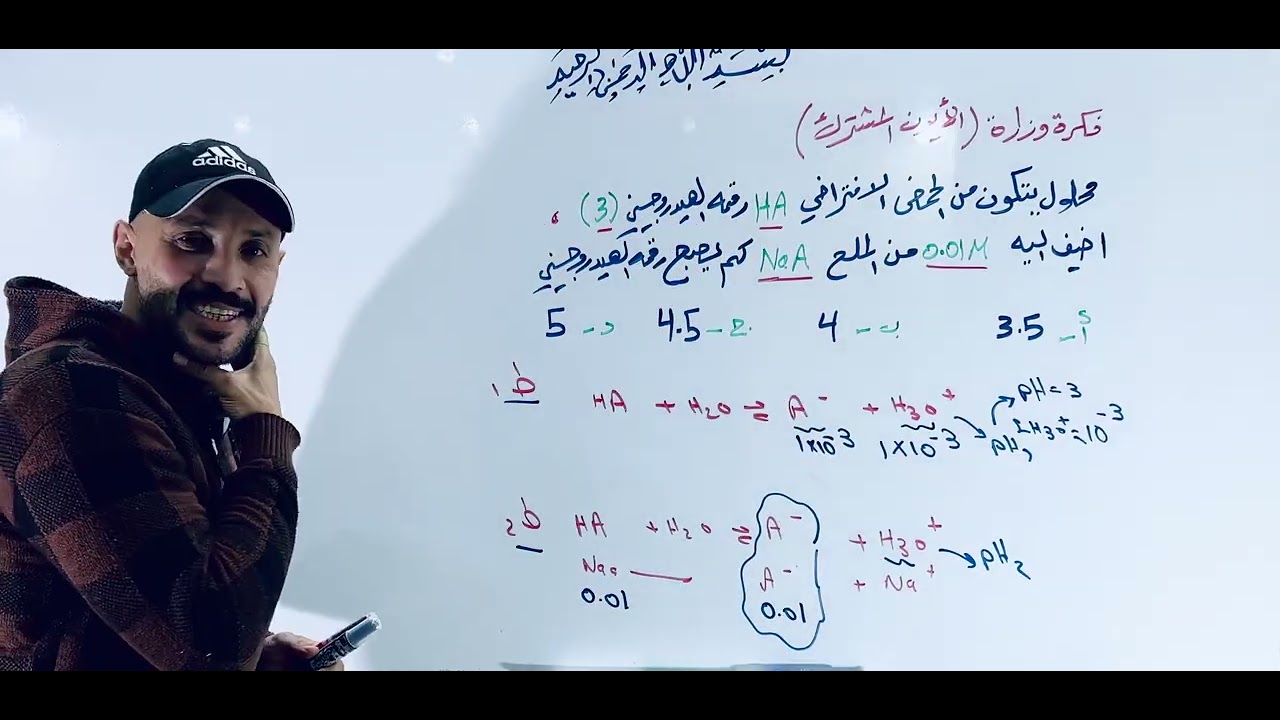 بسم الله الرحمن الرحيم
فكرة وزارة (الأيون المشترك)
محلول يتكون من الحمض الافتراضي HA رقمه الهيدروجيني (3)،
اضيف اليه 0.01M من الملح NaA كم يصبح رقمه الهيدروجيني
أ- 3.5 ب- 4 ج- 4.5 د- 5
ط1 HA + H2O ⇌ A⁻ + H3O⁺ pH = 3
1×10⁻³ 1×10⁻³ pH1 [H3O⁺] = 10⁻³
ط2 HA + H2O ⇌ A⁻ + H3O⁺ → pH2
Naa — A⁻ + Na⁺
0.01 0.01
adidas